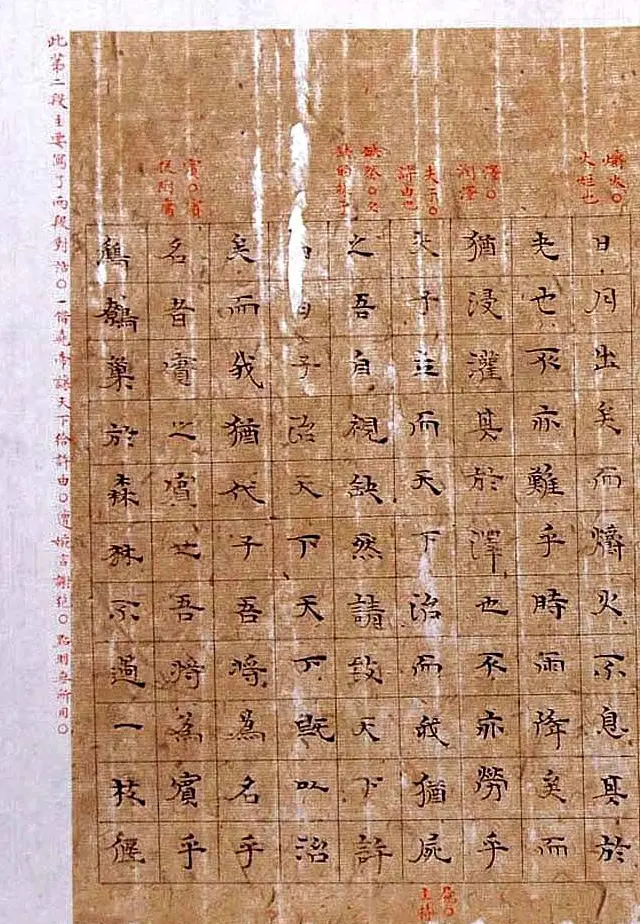 爝火〇
火炬也
澤〇
潤澤
夫子〇
許由也
缺然〇欠
缺的樣子
賓〇賓
從附屬
日月出矣而爝火不息其於
光也不亦難乎時雨降矣而
猶浸灌其於澤也不亦勞乎
夫子立而天下治而我猶屍
之吾自視缺然請致天下許
由曰子治天下天下既以治
矣而我猶代子吾將為名乎
名者實之賓也吾將為賓乎
鷦鷯巢於森林不過一枝偃
屍〇
主持
此第二段主要寫了兩段對話〇一借堯帝讓天下給許由〇遭婉言謝絕〇點明無所用〇